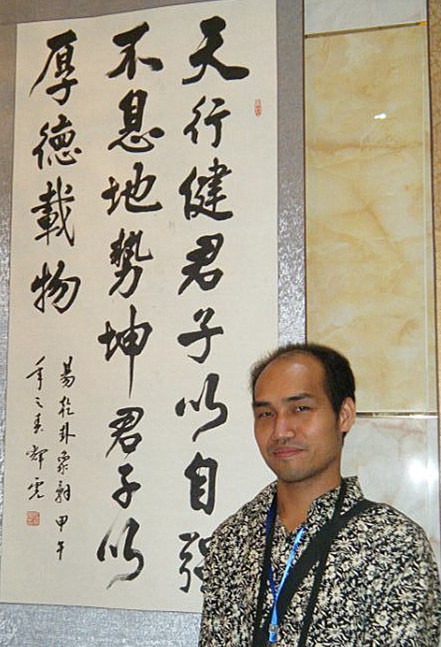 天行健君子以自强
不息地势坤君子以
厚德載物
易乾卦象辞甲午
年之春